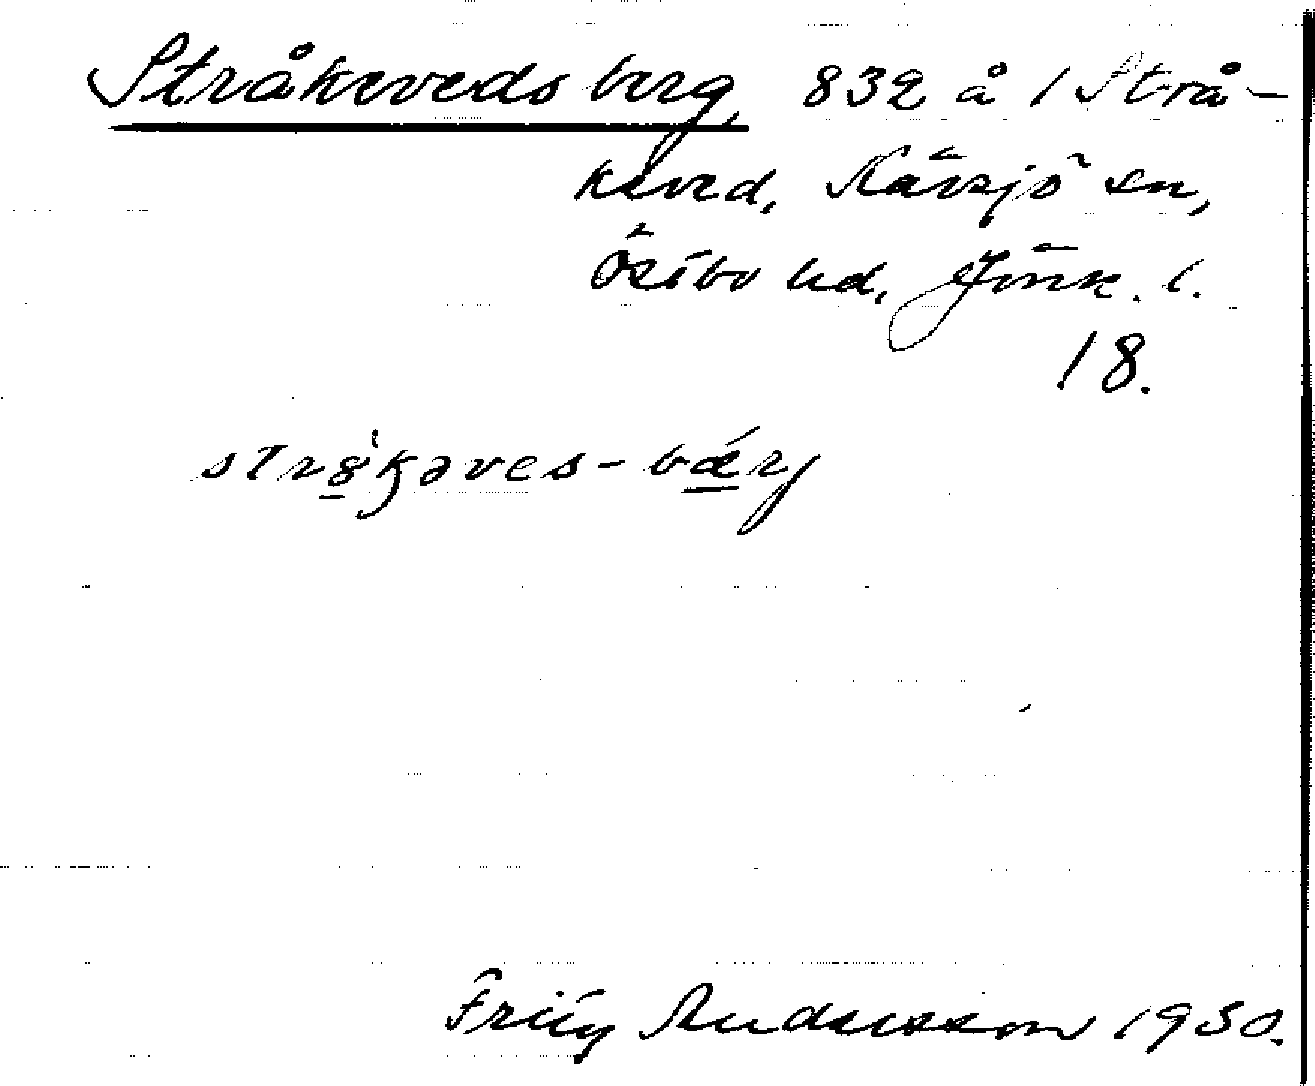 Stråkevedsberg 832 å 1 Strå-
keved, Kävsjö sn,
Östbo hd, Jönk. l.
18.
strȣ̀kəves-bǽrj
Fritz Andersson 1930.